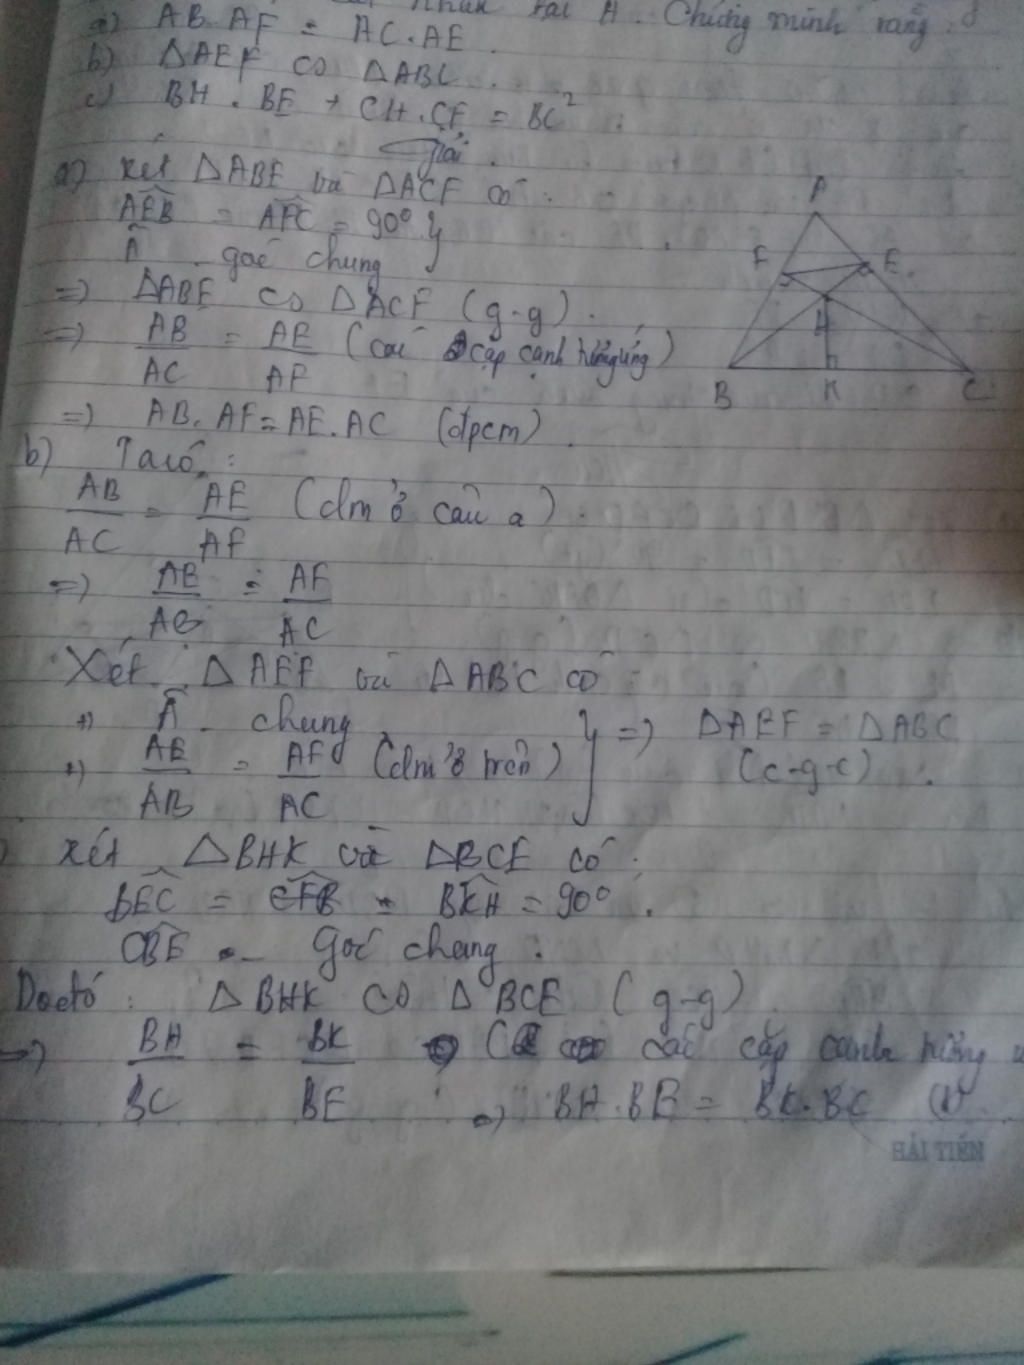 nhau tại H. Chứng minh rằng:
a) AB.AF = AC.AE.
b) ΔAEF ∽ ΔABC.
c) BH.BE + CH.CF = BC².
Giải.
a) Xét ΔABE và ΔACF có:
AEB = AFC = 90° }
Â - góc chung
=> ΔABE ∽ ΔACF (g-g).
=> AB/AC = AE/AF (các cặp cạnh tương ứng)
=> AB.AF = AE.AC (đpcm).
b) Ta có:
AB/AC = AE/AF (clm ở câu a).
=> AE/AB = AF/AC
Xét ΔAEF và ΔABC có:
+) Â - chung
+) AE/AB = AF/AC (clm ở trên) } => ΔAEF = ΔABC (c-g-c).
Xét ΔBHK và ΔBCE có:
BEC = CFB = BKH = 90°.
CBE - Góc chung.
Do đó: ΔBHK ∽ ΔBCE (g-g)
=> BH/BC = BK/BE các cặp cạnh
=> BH.BE = BK.BC (1)
A
F
E
H
B
K
C
HẢI TIẾN